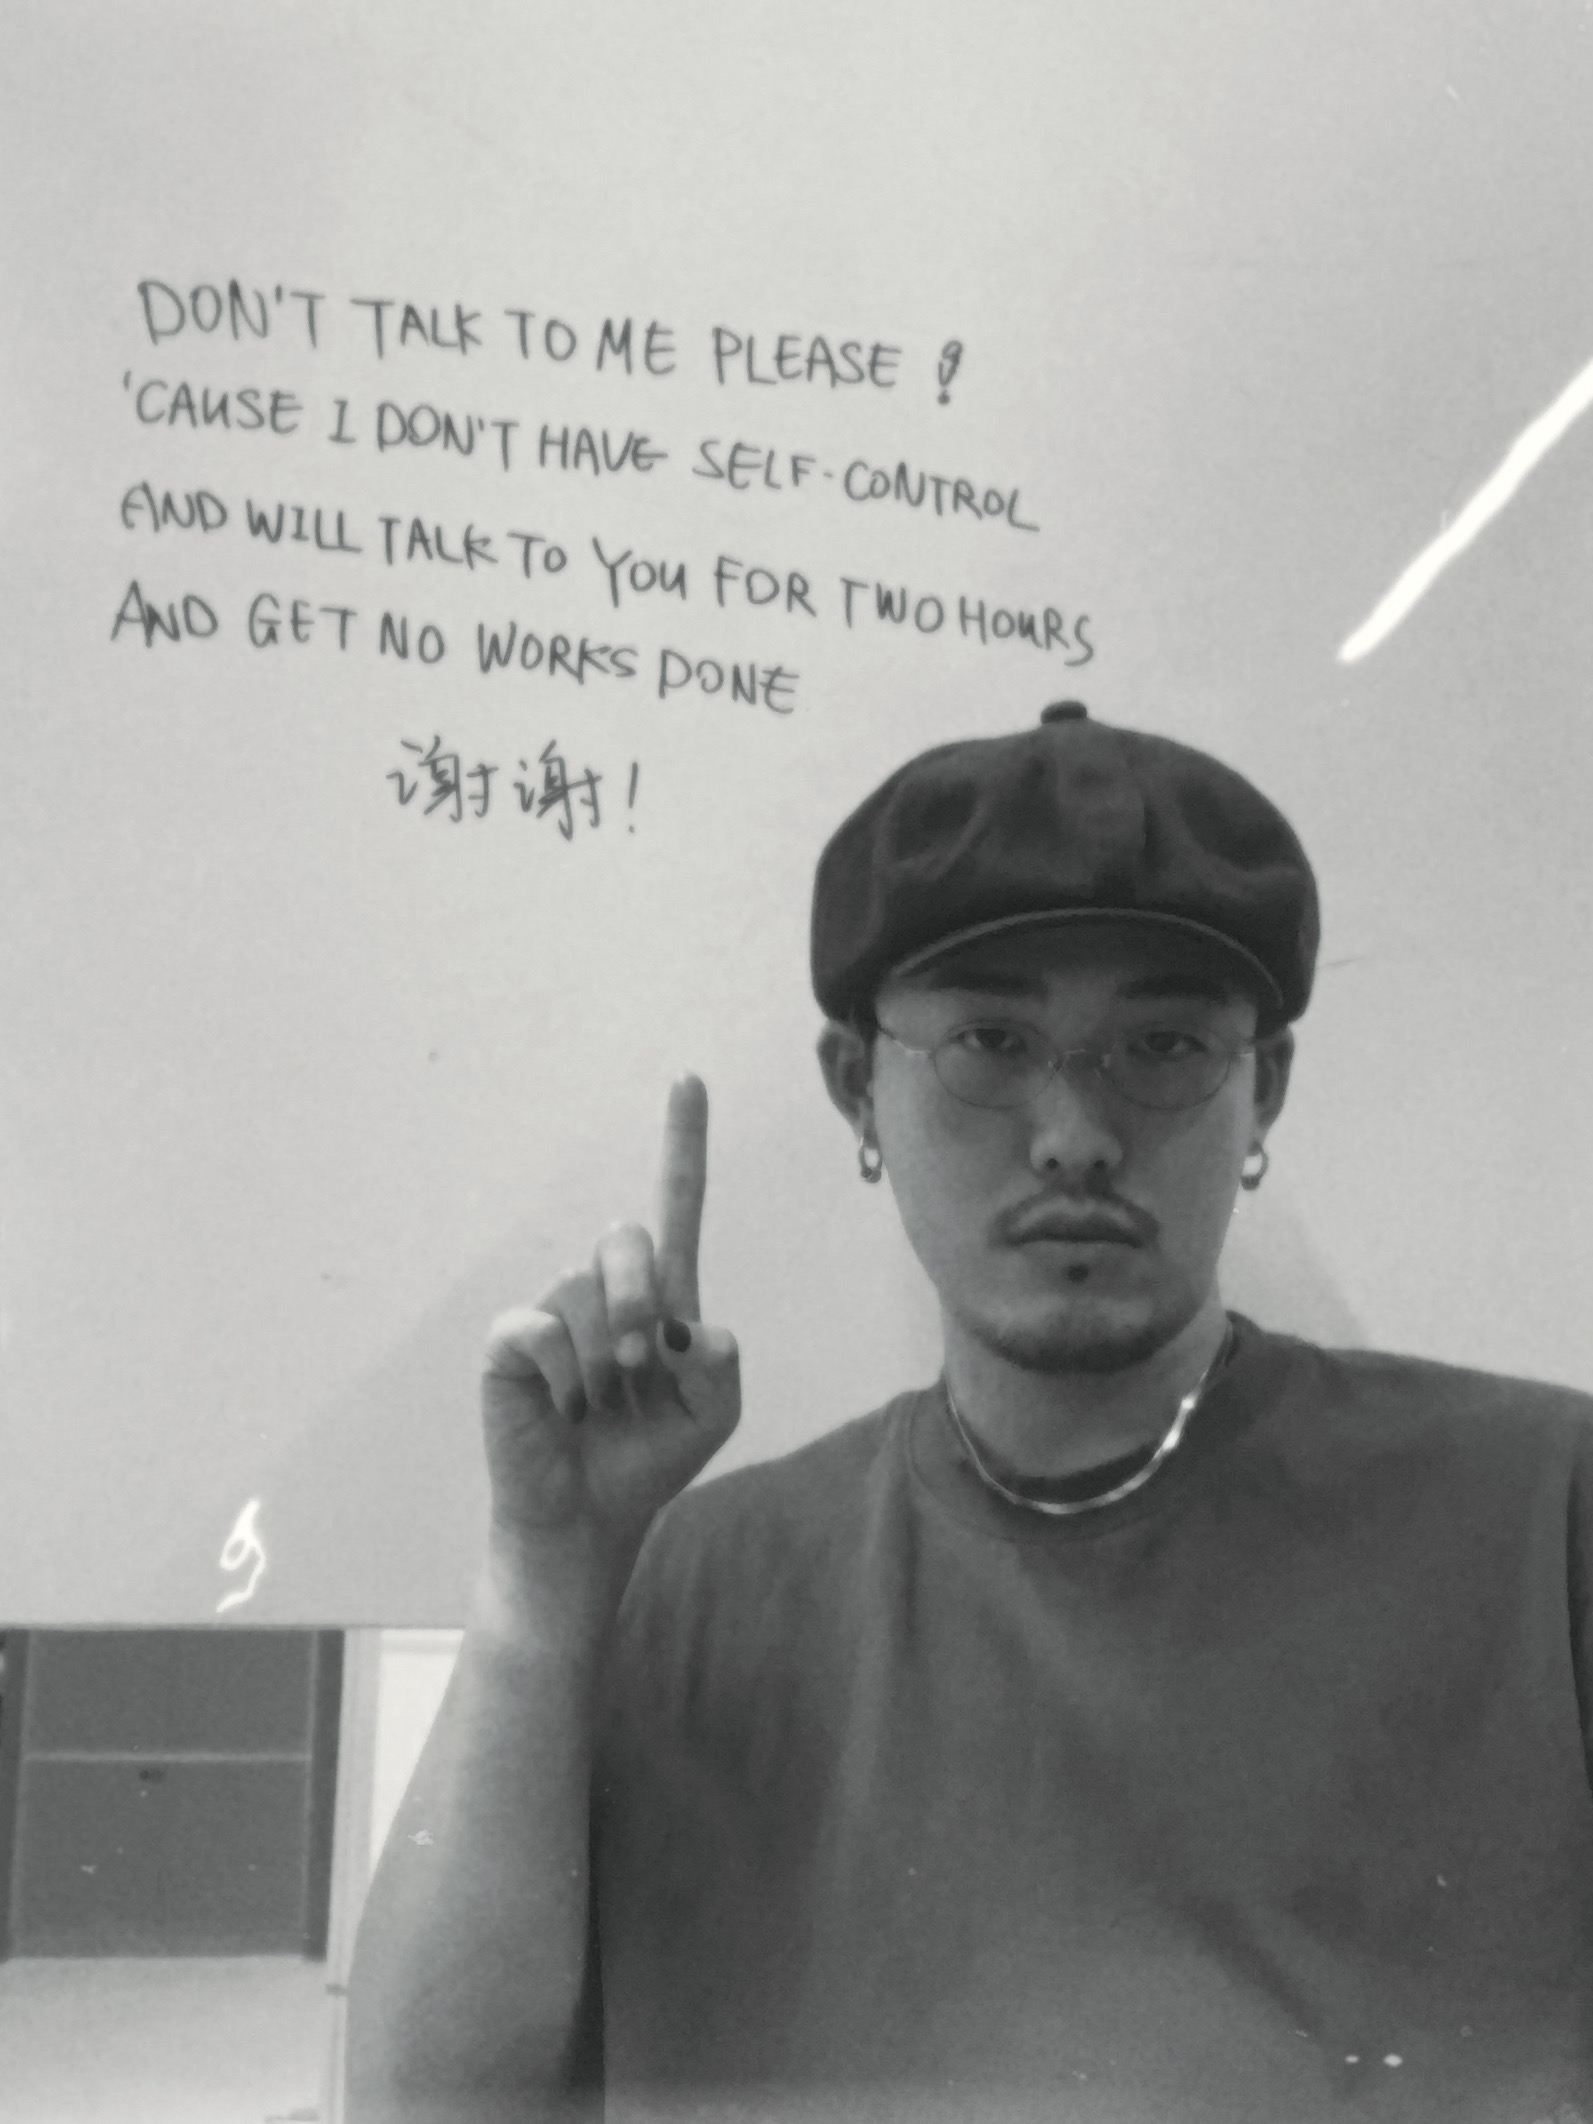 DON'T TALK TO ME PLEASE !
'CAUSE I DON'T HAVE SELF-CONTROL
AND WILL TALK TO YOU FOR TWO HOURS
AND GET NO WORKS DONE
谢谢!